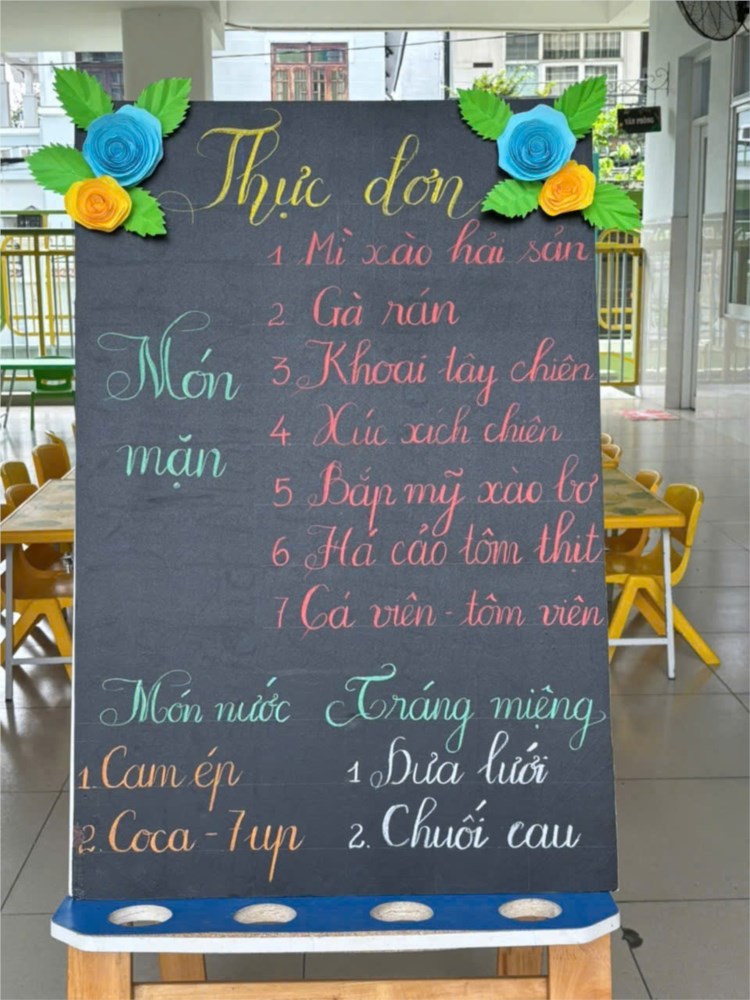 Thực đơn
Món
mặn
1 Mì xào hải sản
2 Gà rán
3 Khoai tây chiên
4 Xúc xích chiên
5 Bắp mỹ xào bơ
6 Há cảo tôm thịt
7 Cá viên - tôm viên
Món nước
1 Cam ép
2. Coca - 7up
Tráng miệng
1 Dưa lưới
2. Chuối cau
VĂN PHÒNG